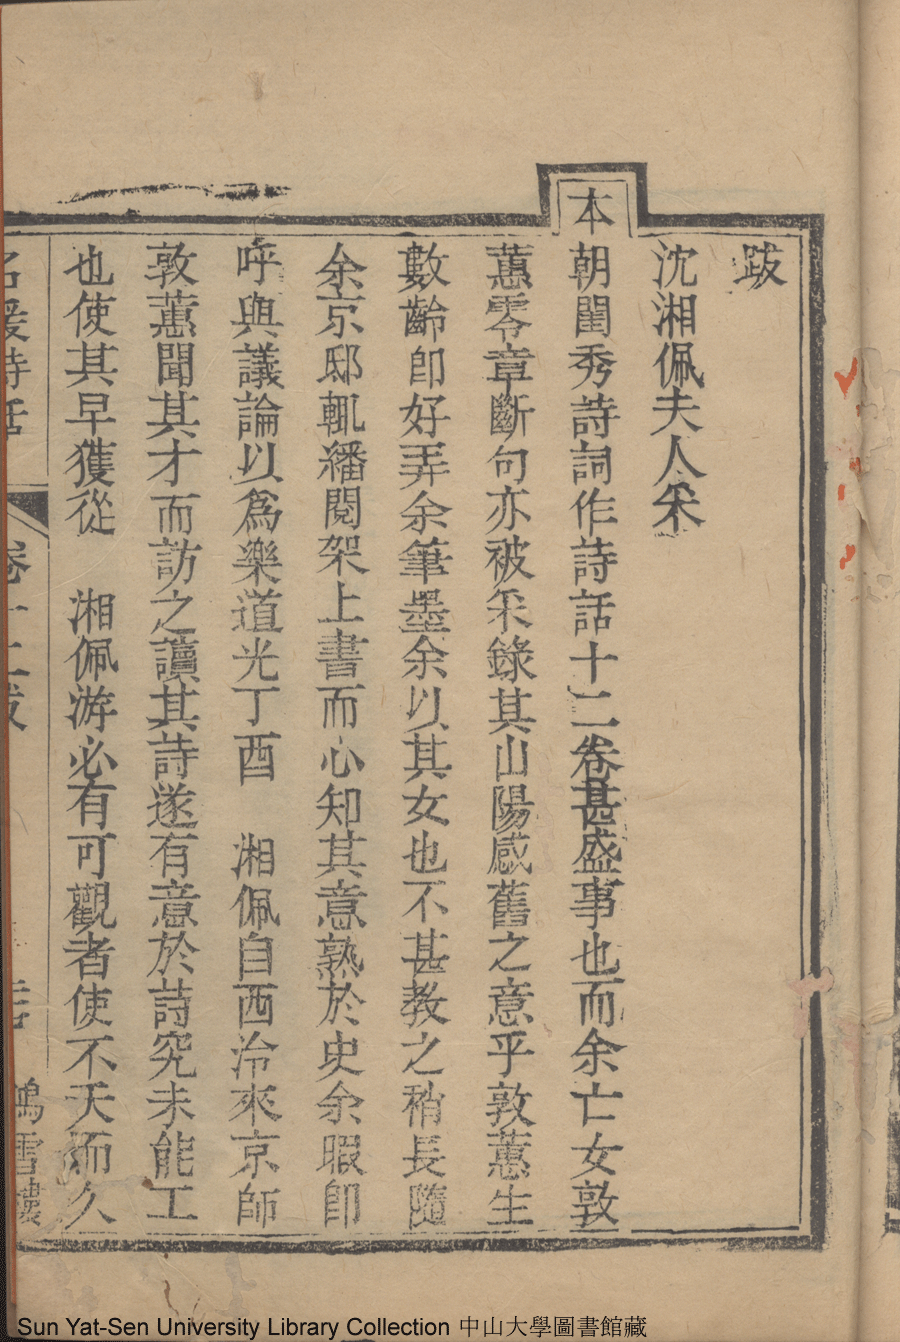 跋
沈湘佩夫人釆
本朝閨秀詩詞作詩話十二卷甚盛事也而余亡女敦
蕙零章斷句亦被釆錄其山陽感舊之意乎敦蕙生
數齡卽好弄余筆墨余以其女也不甚教之稍長隨
余京邸輒繙閱架上書而心知其意熟於史余暇卽
呼與議論以爲樂道光丁酉 湘佩自西泠來京師
敦蕙聞其才而訪之讀其詩遂有意於詩究未能工
也使其早獲從 湘佩游必有可觀者使不夭而久
名媛詩話 卷十二跋 鴻雪樓
Sun Yat-Sen University Library Collection 中山大學圖書館藏